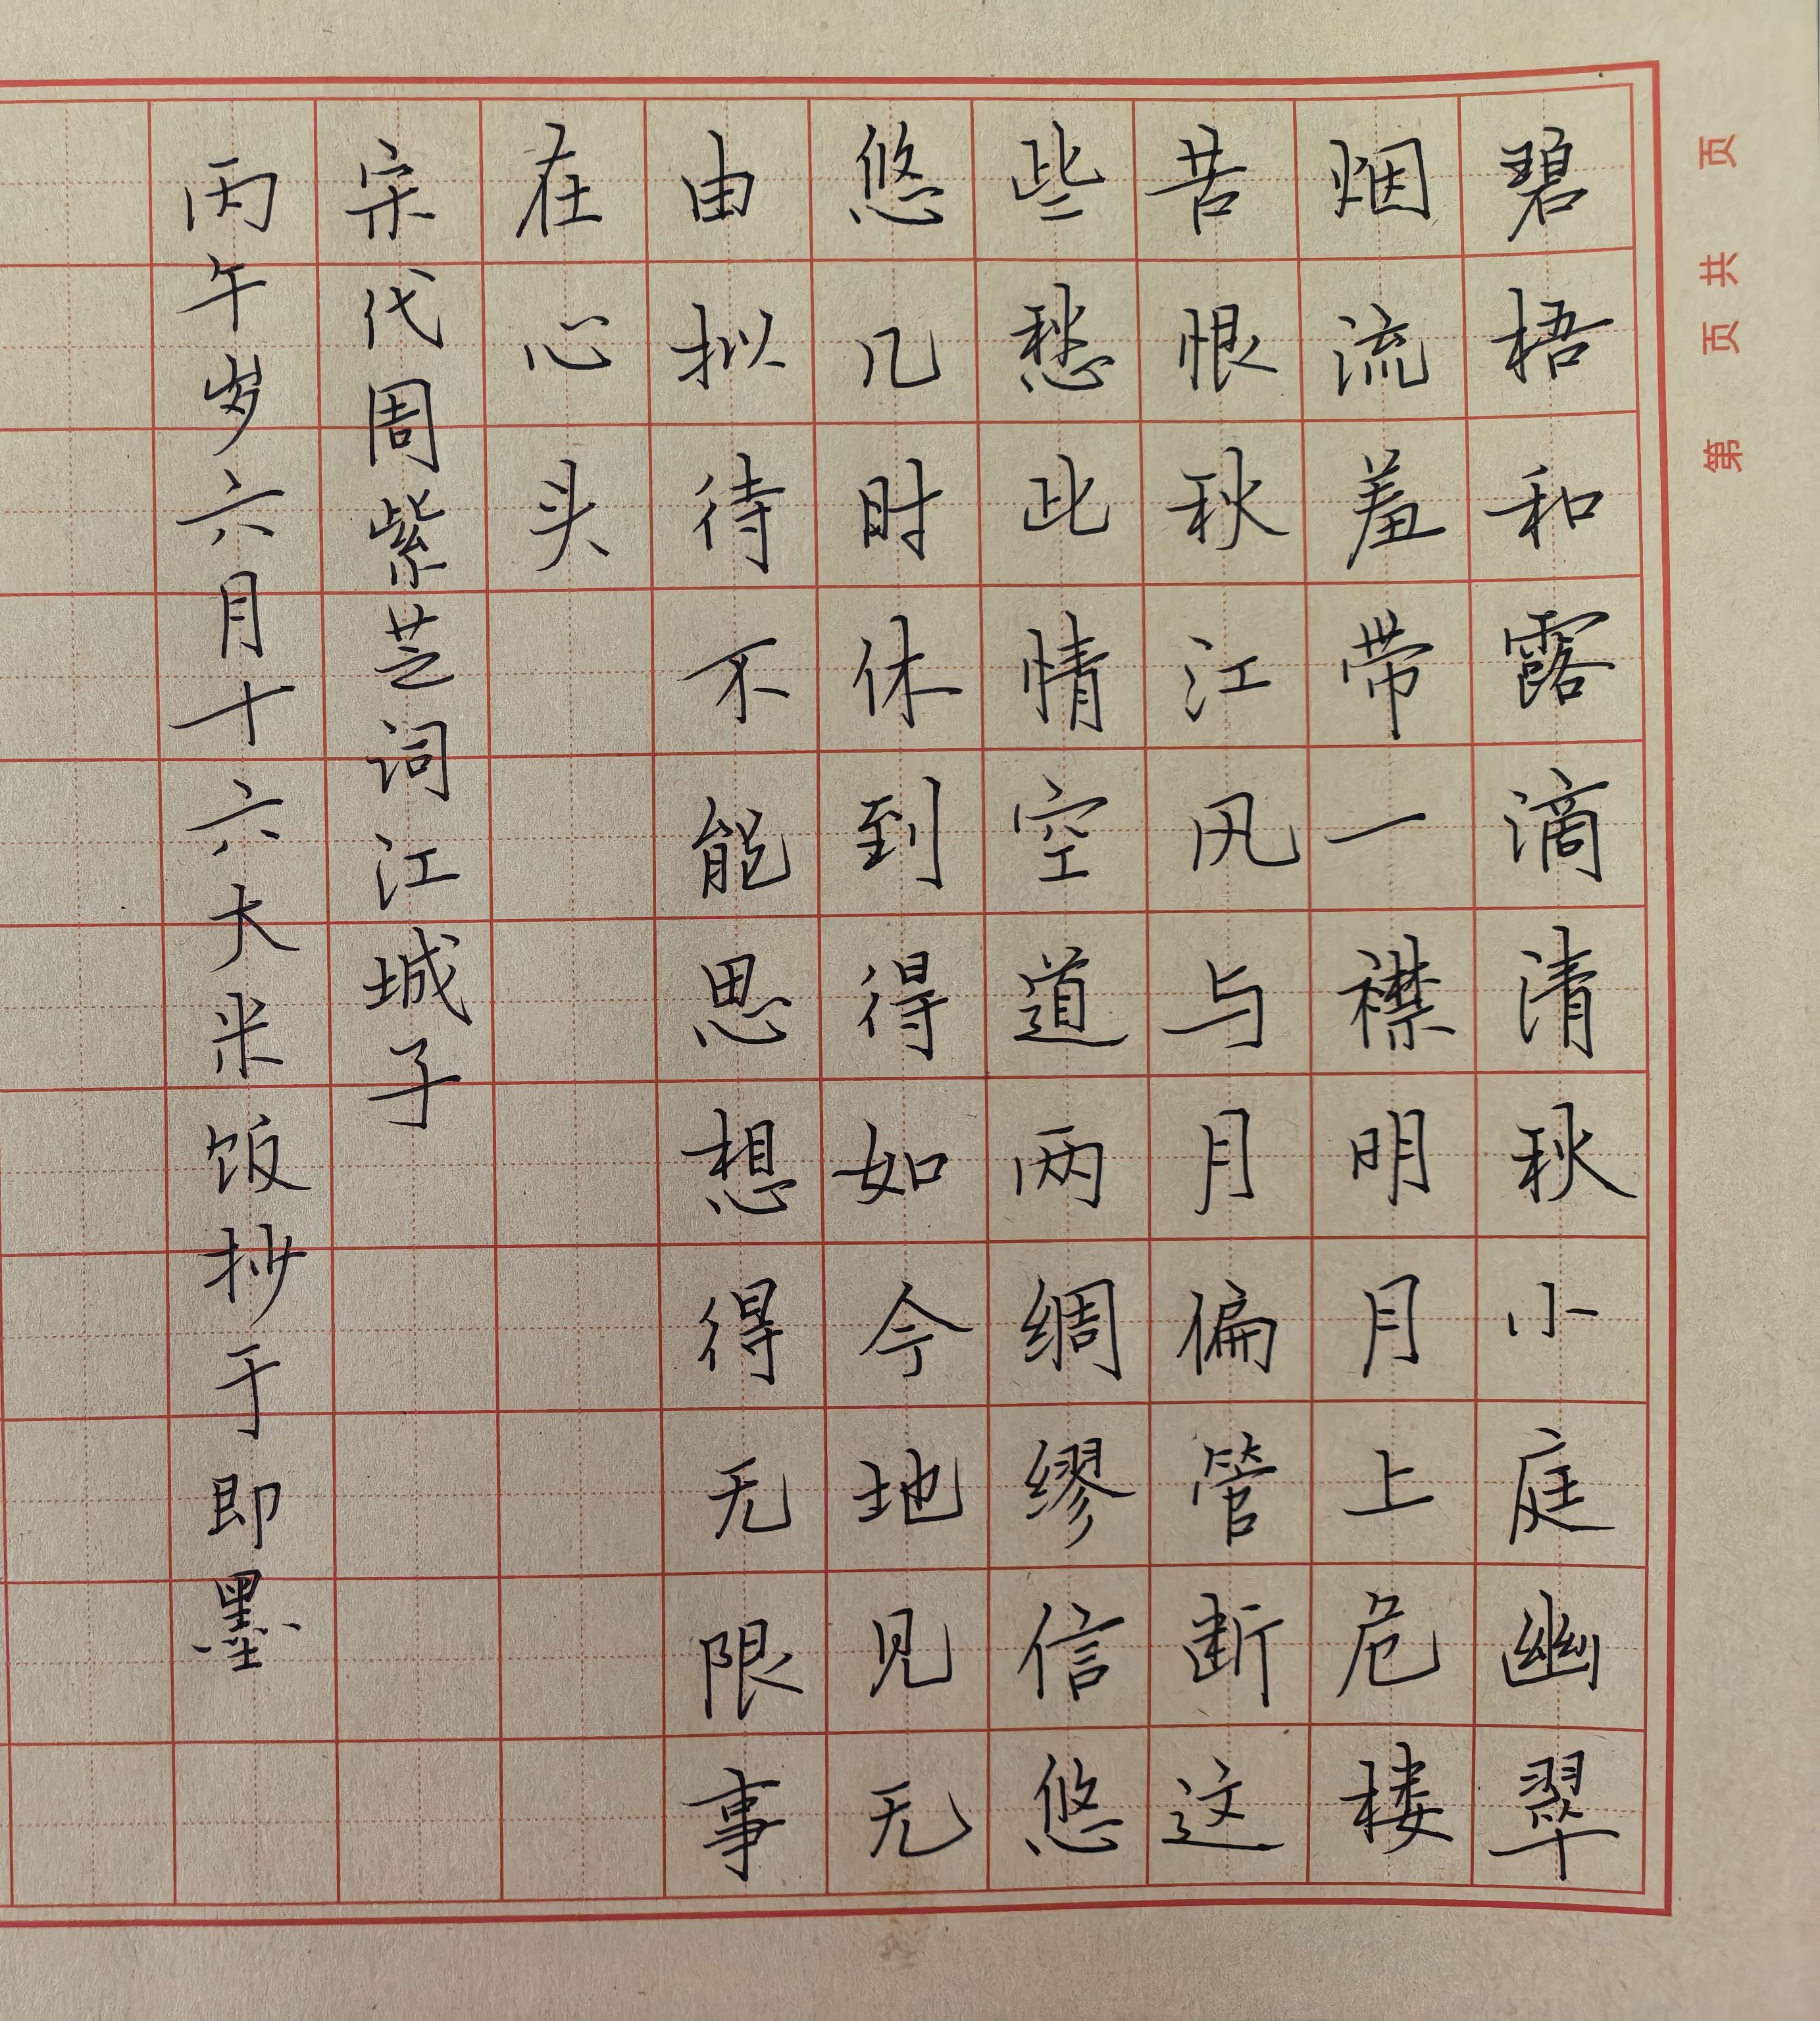 碧梧和露滴清秋小庭幽翠
烟流羞带一襟明月上危楼
苦恨秋江风与月偏管断这
些愁此情空道两绸缪信悠
悠几时休到得如今地见无
由拟待不能思想得无限事
在心头
宗代周紫芝词江城子
丙午岁六月十六大米饭抄于即墨
第 页 共 页